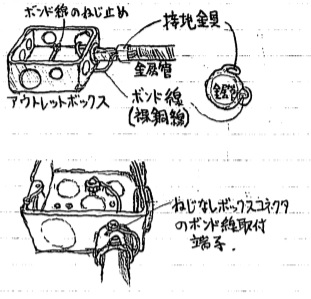 ボンド線のねじ止め
接地金具
金属管
アウトレットボックス
ボンド線
(裸銅線)
ねじなしボックスコネクタ
のボンド線取付
端子.